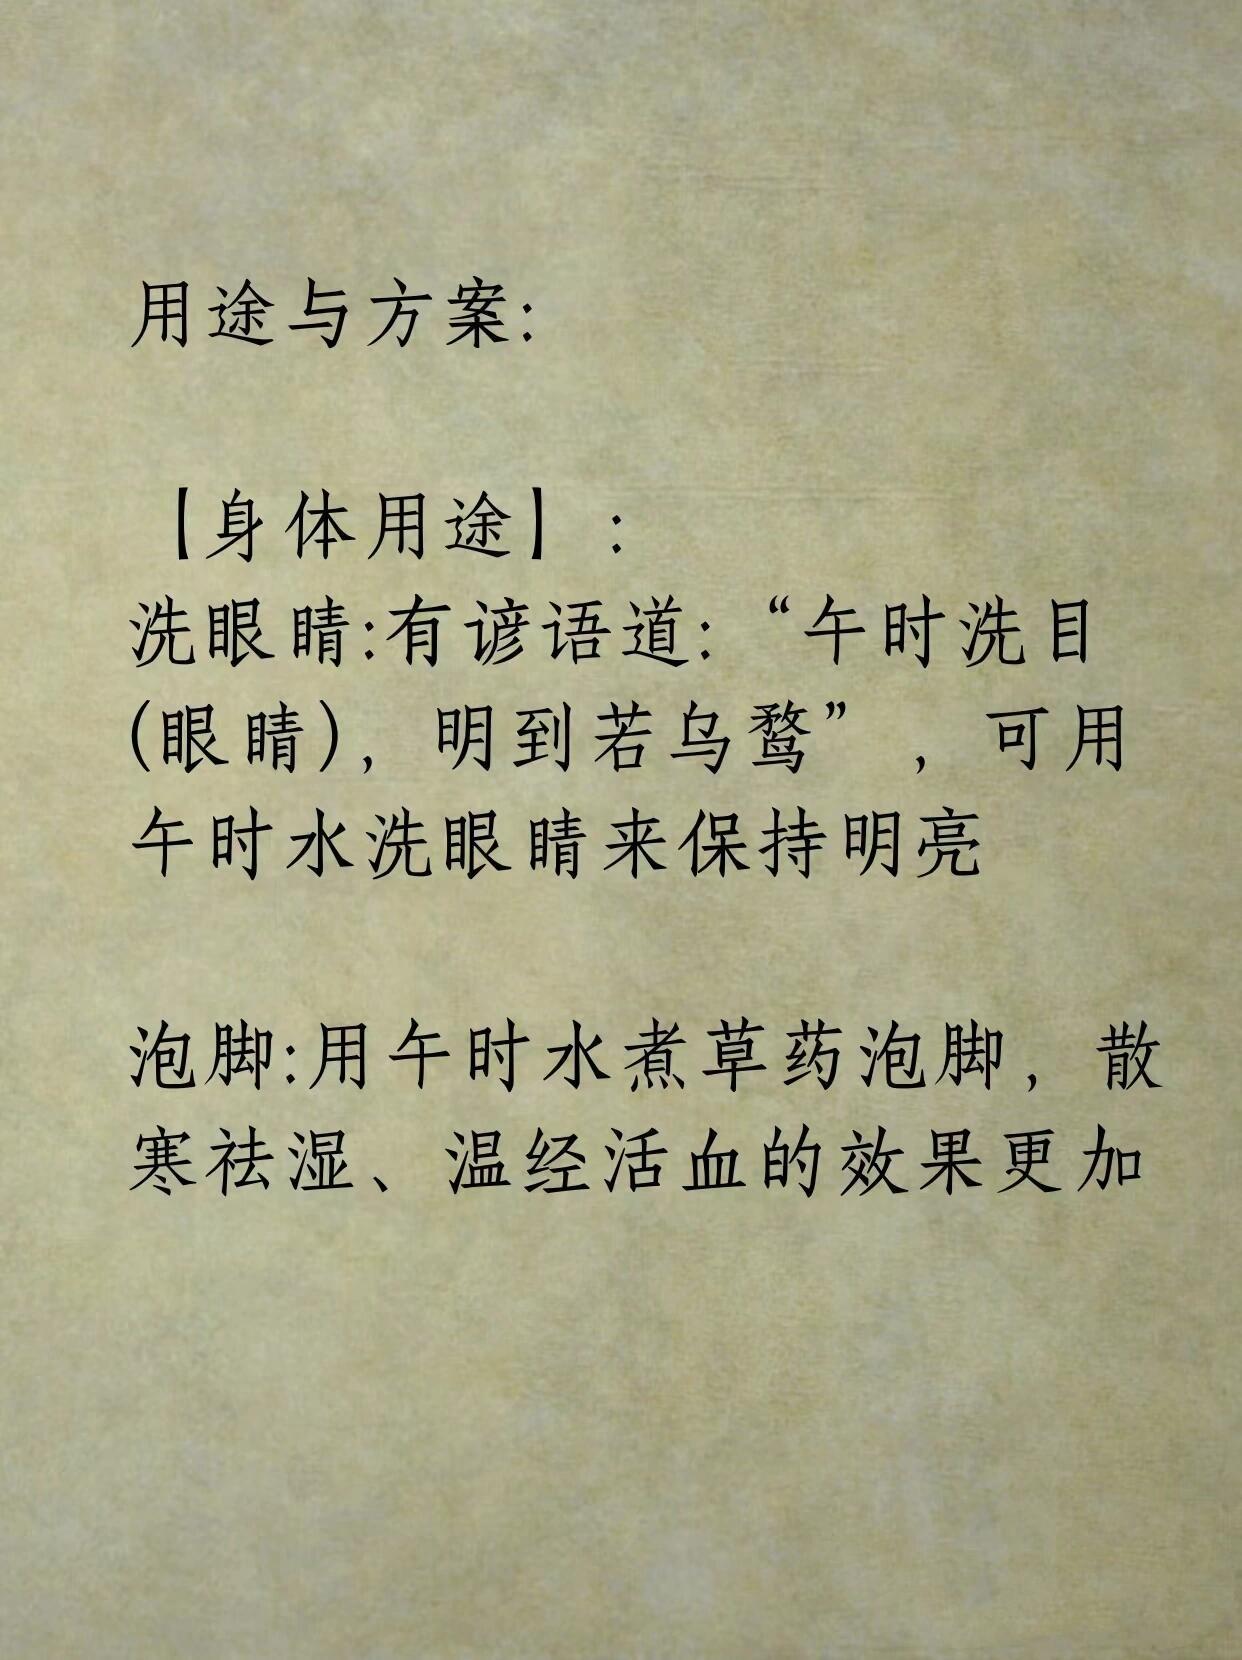 用途与方案:
【身体用途】:
洗眼睛:有谚语道:“午时洗目
(眼睛),明到若乌鹜”,可用
午时水洗眼睛来保持明亮
泡脚:用午时水煮草药泡脚,散
寒祛湿、温经活血的效果更加